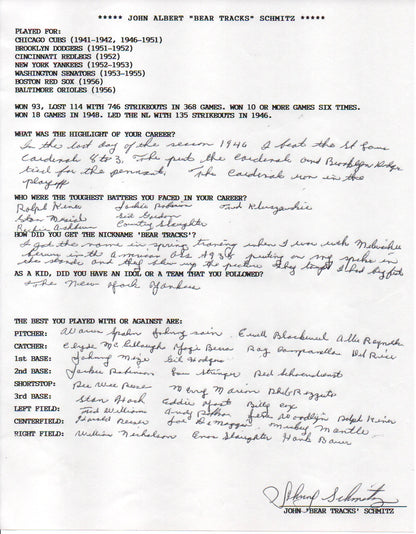 ***** JOHN ALBERT "BEAR TRACKS" SCHMITZ *****
PLAYED FOR:
CHICAGO CUBS (1941-1942, 1946-1951)
BROOKLYN DODGERS (1951-1952)
CINCINNATI REDLEGS (1952)
NEW YORK YANKEES (1952-1953)
WASHINGTON SENATORS (1953-1955)
BOSTON RED SOX (1956)
BALTIMORE ORIOLES (1956)
WON 93, LOST 114 WITH 746 STRIKEOUTS IN 368 GAMES. WON 10 OR MORE GAMES SIX TIMES.
WON 18 GAMES IN 1948. LED THE NL WITH 135 STRIKEOUTS IN 1946.
WHAT WAS THE HIGHLIGHT OF YOUR CAREER?
In the last day of the season 1946 I beat the St Louis
Cardinals 8 to 3. The put the cardinals and Brooklyn Dodgers
tied for the pennant. The Cardinals won in the
playoff
WHO WERE THE TOUGHEST BATTERS YOU FACED IN YOUR CAREER?
Ralph Kiner Jackie Robinson Ted Kluszewski
Stan Musial Sid Gordon
Richie Ashburn Country Slaughter
HOW DID YOU GET THE NICKNAME 'BEAR TRACKS'?
I got the name in spring training when I was with Milwaukee
Brewers in the American Ass 1938 putting on my spikes in
the stands and they blew up the picture. They tought I had big feet
AS A KID, DID YOU HAVE AN IDOL OR A TEAM THAT YOU FOLLOWED?
The New York Yankees
THE BEST YOU PLAYED WITH OR AGAINST ARE:
PITCHER: Warren Spahn Johnny Sain Ewell Blackwell Allie Reynolds
CATCHER: Clyde McCullough Yogi Berra Roy Campanella Del Rice
1st BASE: Johnny Mize Gil Hodges
2nd BASE: Jackie Robinson Lou Stringer Red Schoendienst
SHORTSTOP: Pee Wee Reese Marty Marion Phil Rizzuto
3rd BASE: Stan Hack Eddie Yost Billy Cox
LEFT FIELD: Ted Williams Andy Pafko Gene Woodling Ralph Kiner
CENTERFIELD: Harold Reiser Joe DiMaggio Mickey Mantle
RIGHT FIELD: William Nicholson Enos Slaughter Hank Bauer
Johnny Schmitz
JOHN 'BEAR TRACKS' SCHMITZ